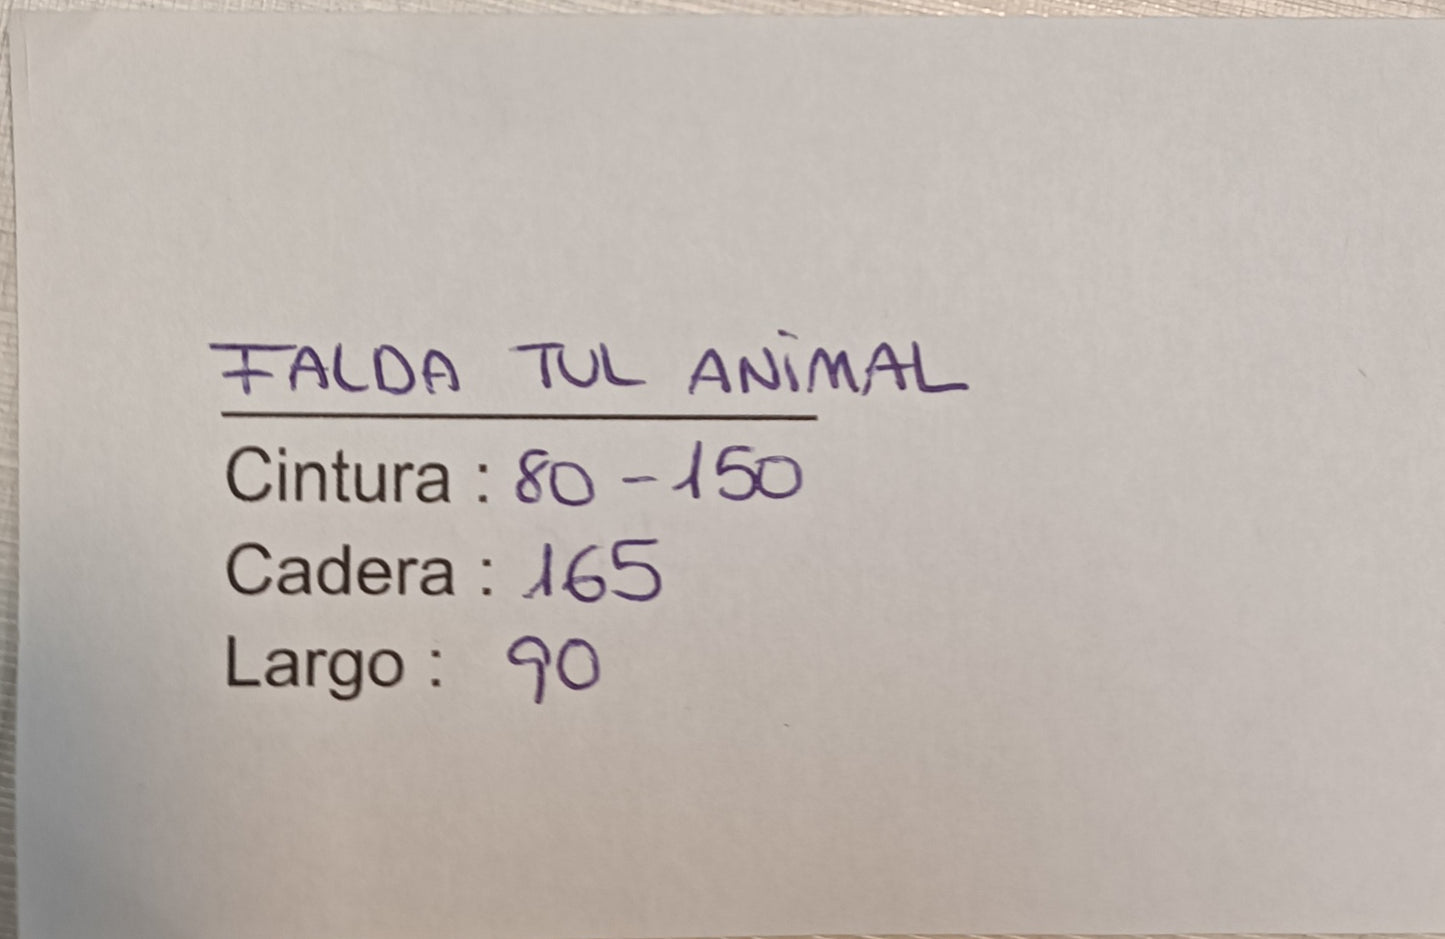 FALDA TUL ANiMAL
Cintura : 80 - 150
Cadera : 165
Largo : 90